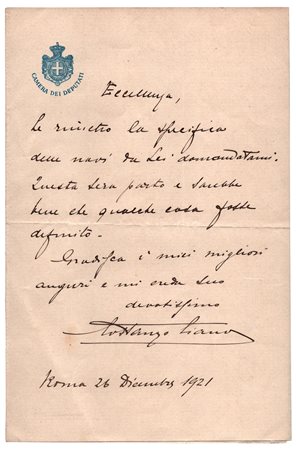 CAMERA DEI DEPUTATI
Eccellenza,
Le rimetto la specifica
delle navi da Lei domandatami.
Questa sera parto e sarebbe
bene che qualche cosa fosse
definito.
Gradisca i miei migliori
auguri e mi creda Suo
devotissimo
Costanzo Ciano
Roma 26 Dicembre 1921